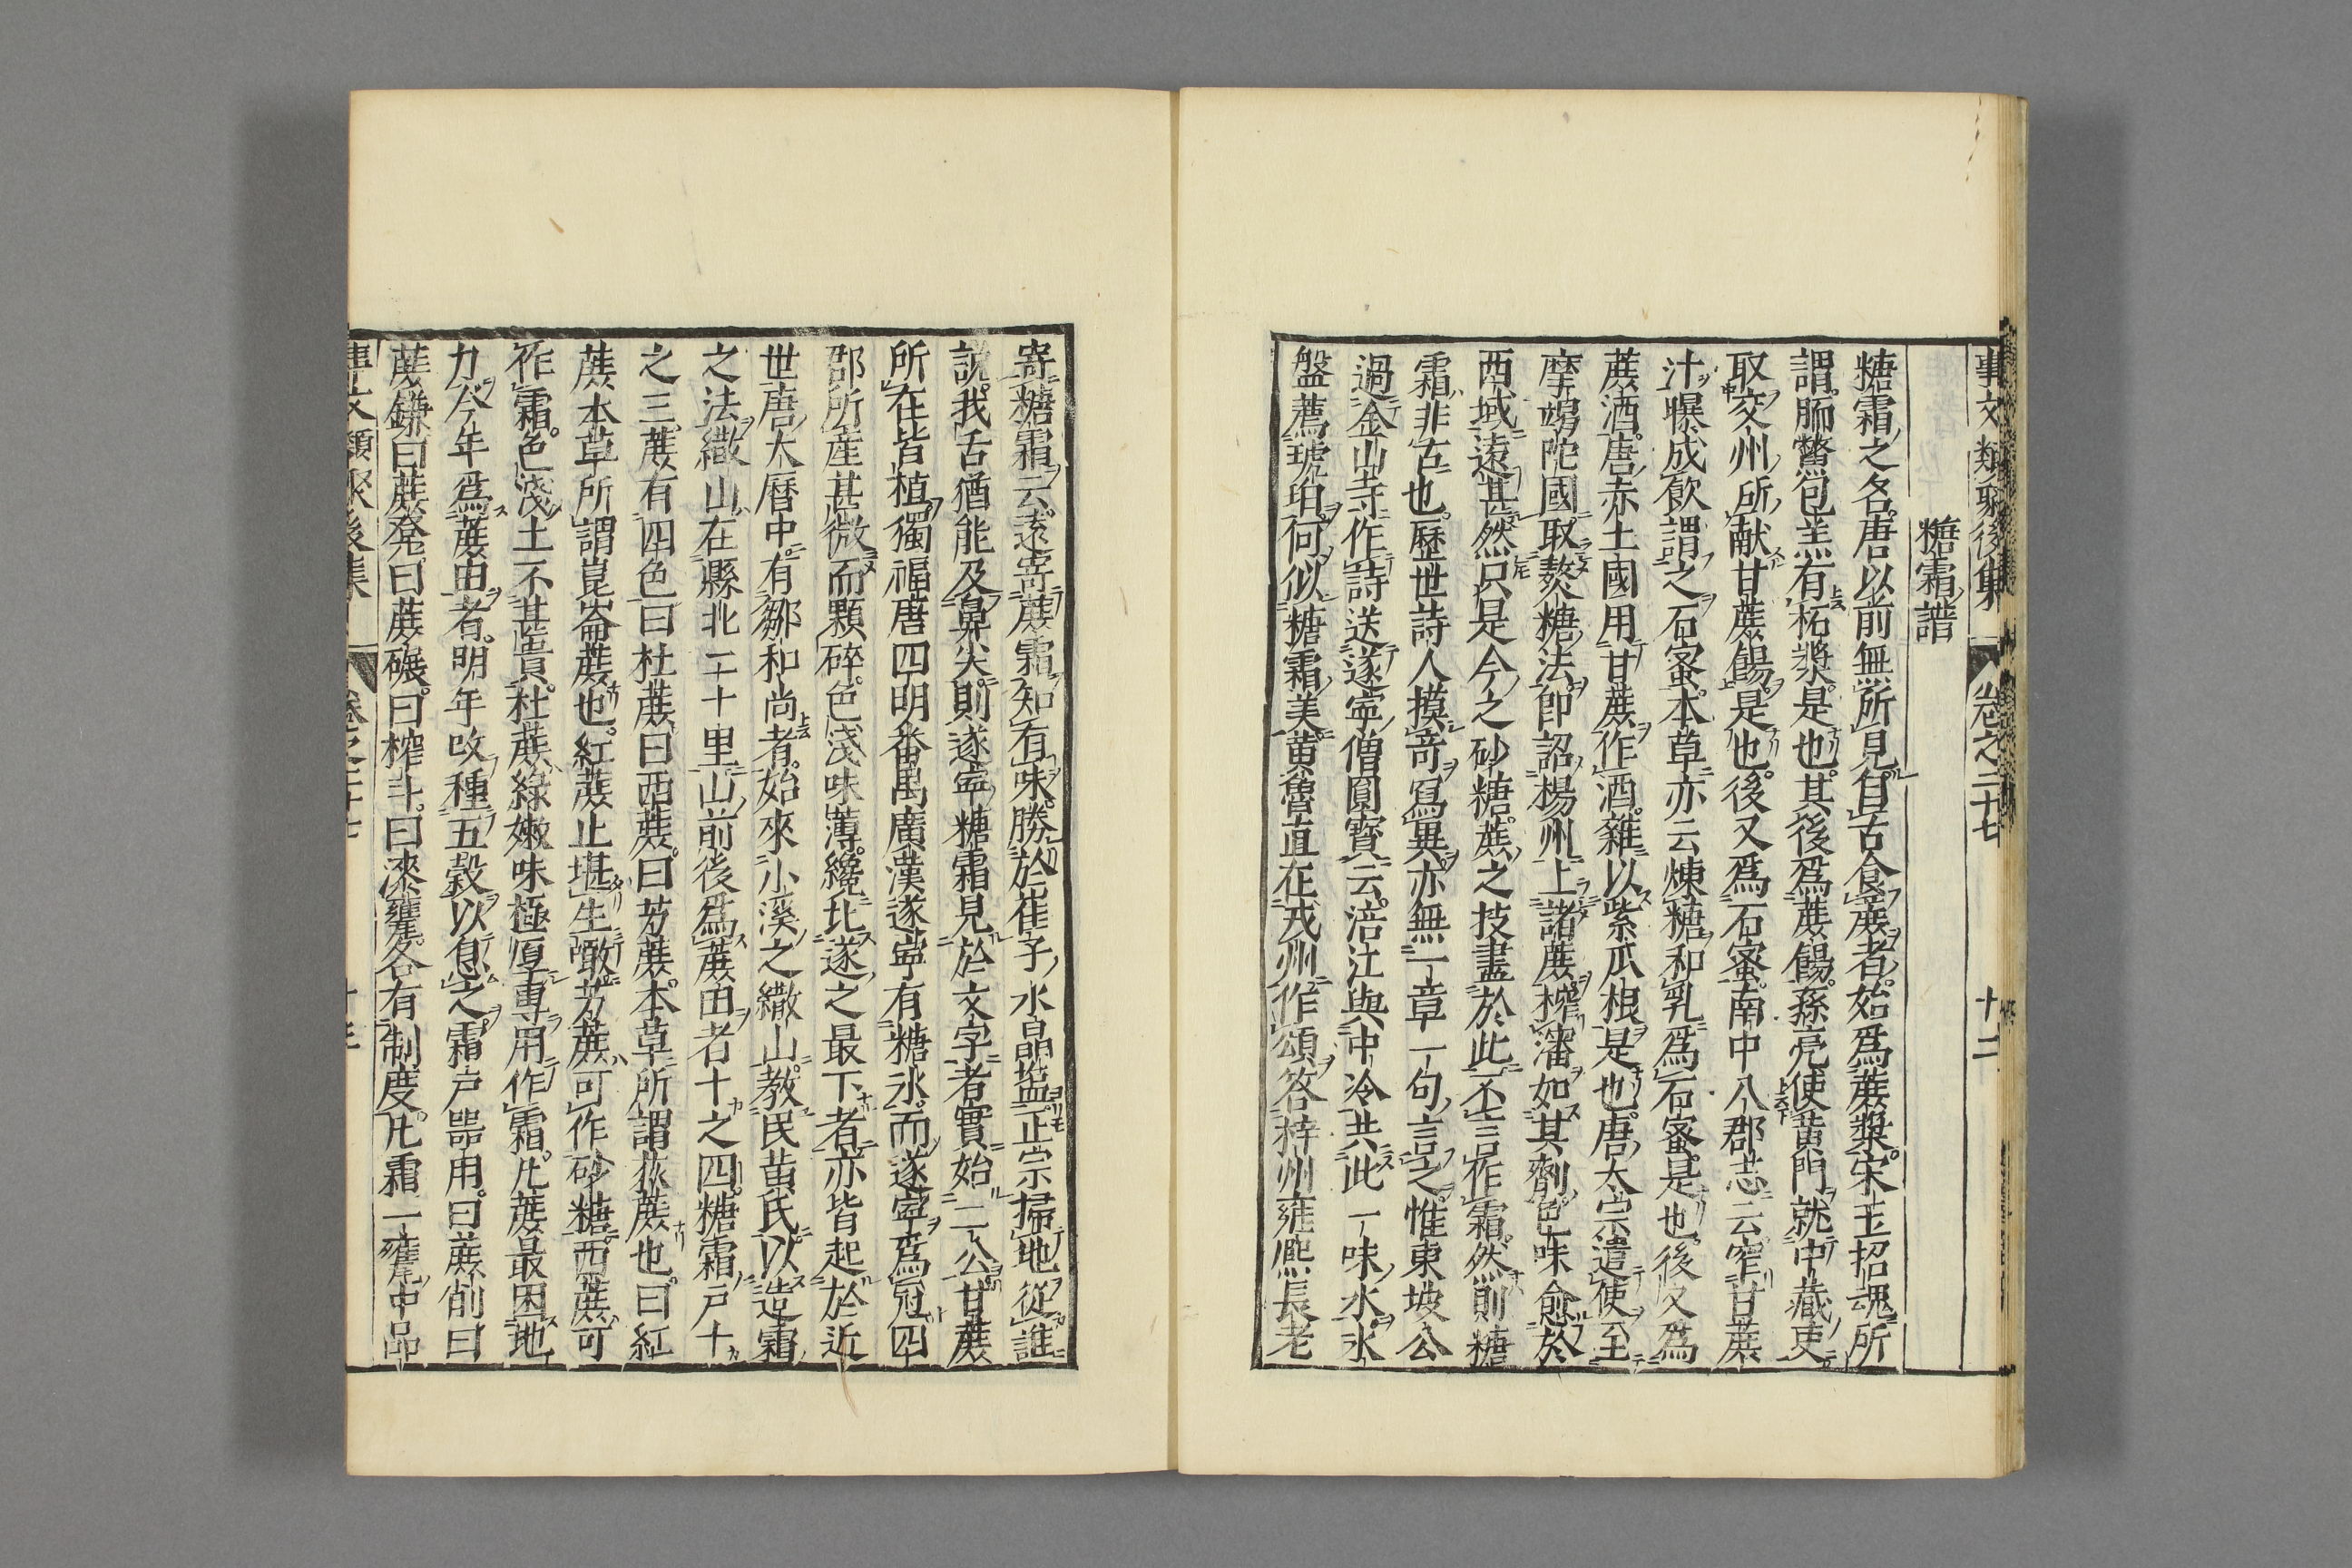 事文類聚後集 卷之二十七 十二
糖霜譜
糖霜之名。唐以前無所見。自古食蔗者。始爲蔗漿。宋玉招魂所
謂。胹鱉炰羔有柘漿是也。其後爲蔗餳。孫亮使黄門就中藏吏
取交州所献甘蔗餳是也。後又爲石蜜。南中八郡志云窄甘蔗
汁曝成飲謂之石蜜。本草亦云煉糖和乳爲石蜜。是也。後又爲
蔗酒。唐赤土國用甘蔗作酒。雜以紫瓜根是也。唐太宗遣使至
摩竭陀國。取熬糖法。即詔楊州上諸蔗榨瀋如其劑。色味愈於
西域遠甚。然只是今之砂糖。蔗之技盡於此。不言作霜。然則糖
霜非古也。歷世詩人摸奇寫異。亦無一章一句言之。惟東坡公
過金山寺作詩送遂寧僧圓寳云。涪江與中冷共此一味水。氷
盤薦琥珀何似糖霜美。黄魯直在戎州。作頌答梓州雍熈長老
寄糖霜云。遠寄蔗霜知有味。勝於崔子水晶塩。正宗掃地從誰
説。我舌猶能及鼻尖。則遂寧糖霜見於文字者。實始二公。甘蔗
所在皆植。獨福唐四明番禺廣漢遂寧有糖氷。而遂寧爲冠。四
郡所産甚微。而顆碎。色淺味薄。纔比遂之最下者。亦皆起於近
世。唐大曆中。有鄒和尚者。始來小溪之繖山。教民黄氏。以造霜
之法。繖山在縣北二十里。山前後爲蔗田者十之四。糖霜戸十
之三。蔗有四色。曰杜蔗。曰西蔗。曰芳蔗。本草所謂荻蔗也。曰紅
蔗。本草所謂崑崙蔗也。紅蔗止堪生噉。芳蔗可作砂糖。西蔗可
作霜。色淺土不甚貴。杜蔗緑嫩味極厚。專用作霜。凡蔗最困地
力。今年爲蔗田者。明年改種五穀以息之。霜戸噐用。曰蔗削。曰
蔗鎌。曰蔗凳。曰蔗碾。曰榨斗。曰漆甕。各有制度。凡霜一甕中品
事文類聚後集 卷之二十七 十三